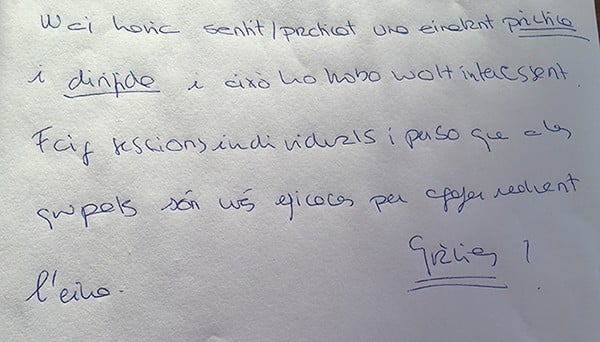 Mai havia sentit/practicat una eina tant pràctica
i dirigida i això ho trobo molt interessant.
Faig sessions individuals i penso que a les
grupals són més eficaces per agafar realment
l'eina.
Gràcies!